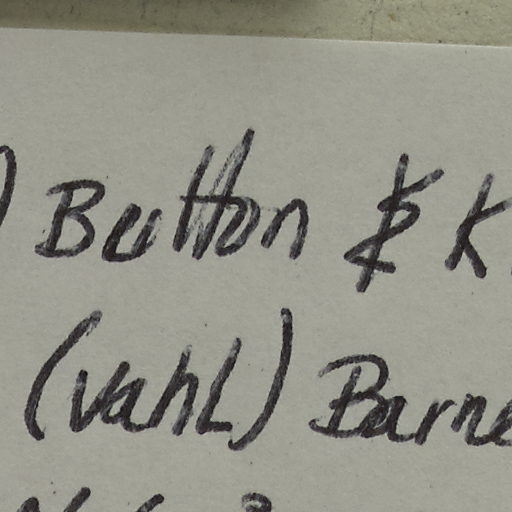 ) Button & K
(vahl) Barne